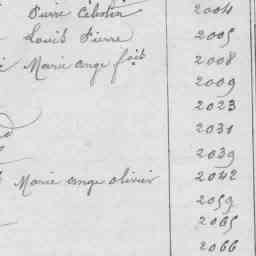 Pierre Célestin 2004
Louis Pierre 2005
Marie ange fait 2008
2009
2023
2031
2039
Marie ange olivier 2042
2059
2065
2066